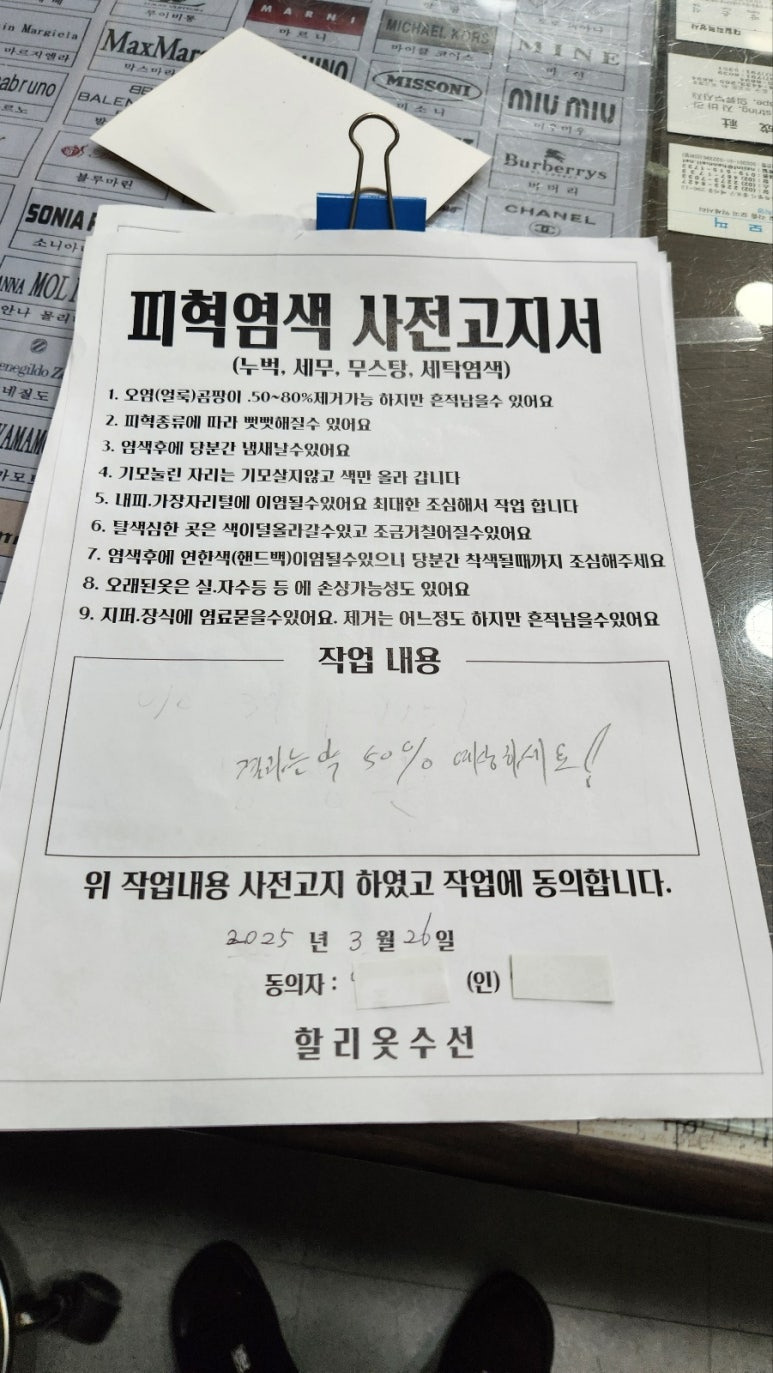 in Margiela
마르지엘라
MARNI
마르니
MICHAEL KORS
마이클 코어스
MaxMar
막스마라
MISSONI
미소니
MINE
마인
miu miu
미우미우
abruno
BALEN
블루마린
Burberrys
버버리
CHANEL
SONIA
소니아
ANNA MOL
안나 몰리
enegildo Z
네질도
피혁염색 사전고지서
(누벅, 세무, 무스탕, 세탁염색)
1. 오염(얼룩)곰팡이 .50~80%제거가능 하지만 흔적남을수 있어요
2. 피혁종류에 따라 뻣뻣해질수 있어요
3. 염색후에 당분간 냄새날수있어요
4. 기모눌린 자리는 기모살지않고 색만 올라 갑니다
5. 내피.가장자리털에 이염될수있어요 최대한 조심해서 작업 합니다
6. 탈색심한 곳은 색이덜올라갈수있고 조금거칠어질수있어요
7. 염색후에 연한색(핸드백)이염될수있으니 당분간 착색될때까지 조심해주세요
8. 오래된옷은 실.자수등 등 에 손상가능성도 있어요
9. 지퍼.장식에 염료묻을수있어요. 제거는 어느정도 하지만 흔적남을수있어요
작업 내용
결과는 약 50% 예상하세요!
위 작업내용 사전고지 하였고 작업에 동의합니다.
2025 년 3 월 26일
동의자 : (인)
할리옷수선